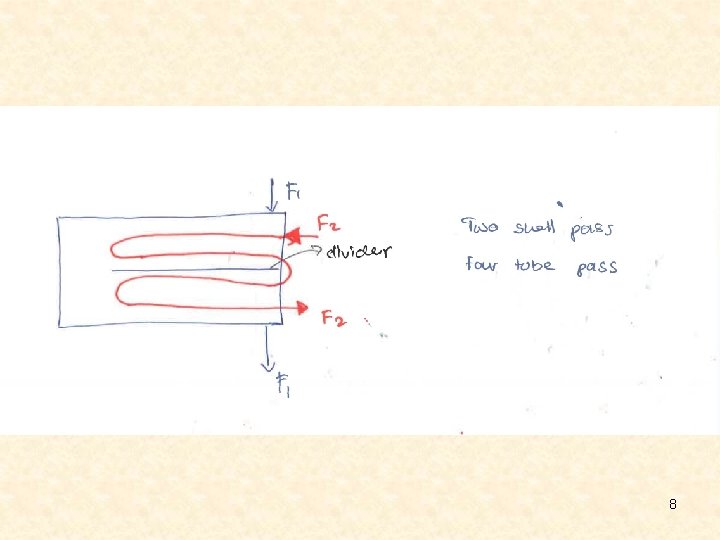 F1
F2
divider
F2
F1
Two shell pass
four tube pass
8